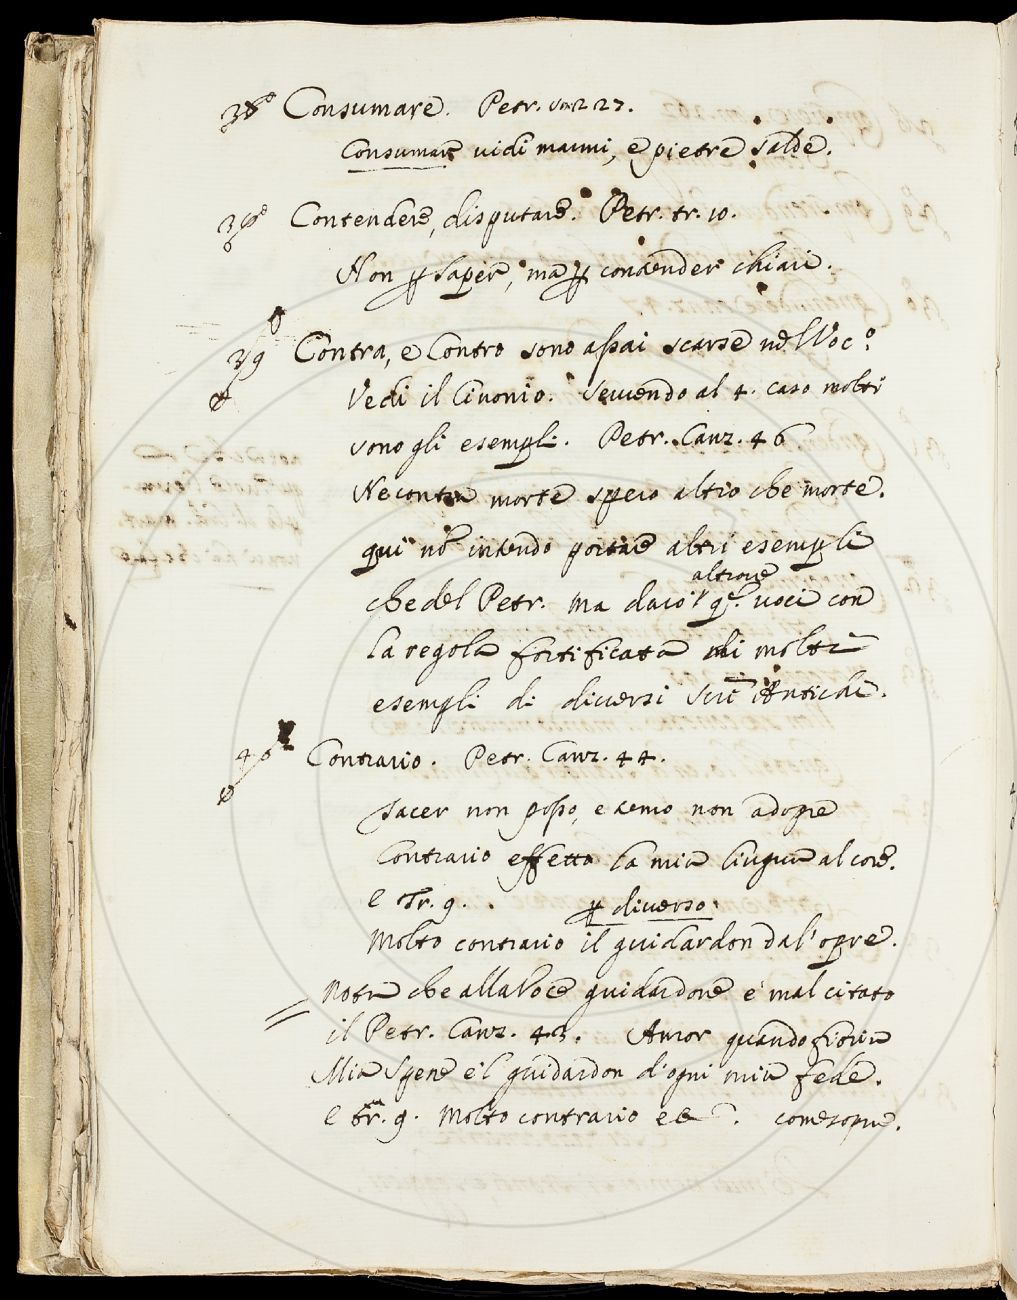 38 Consumare. Petr. son. 227.
Consumar vidi marmi, e pietre salde.
39 Contendere, disputare. Petr. tr. 10.
Non p saper, ma p contender chiari.
39 Contra, e Contro sono assai scarse nel Voc.º
Vedi il Cinonio. Servendo al 4. caso molti
sono gli esempli. Petr. Canz. 46
Ne contra morte spero altro che morte.
qui nō intendo portare altri esempli
che del Petr. ma darò altrove qste voci con
la regola fortificata di molti
esempli di diversi Antichi.
40 Contrario. Petr. Canz. 44.
Tacer non posso, e temo non adopre
Contrario effetto la mia lingua al core.
e Tr. 9. p diverso.
Molto contrario il guidardon dal'opre.
Nota che alla Voce guidardone è mal citato
il Petr. Canz. 43. Amor quando fioria
Mia Spene e'l guidardon d'ogni mia fede.
e tr. 9. Molto contrario come sopra.